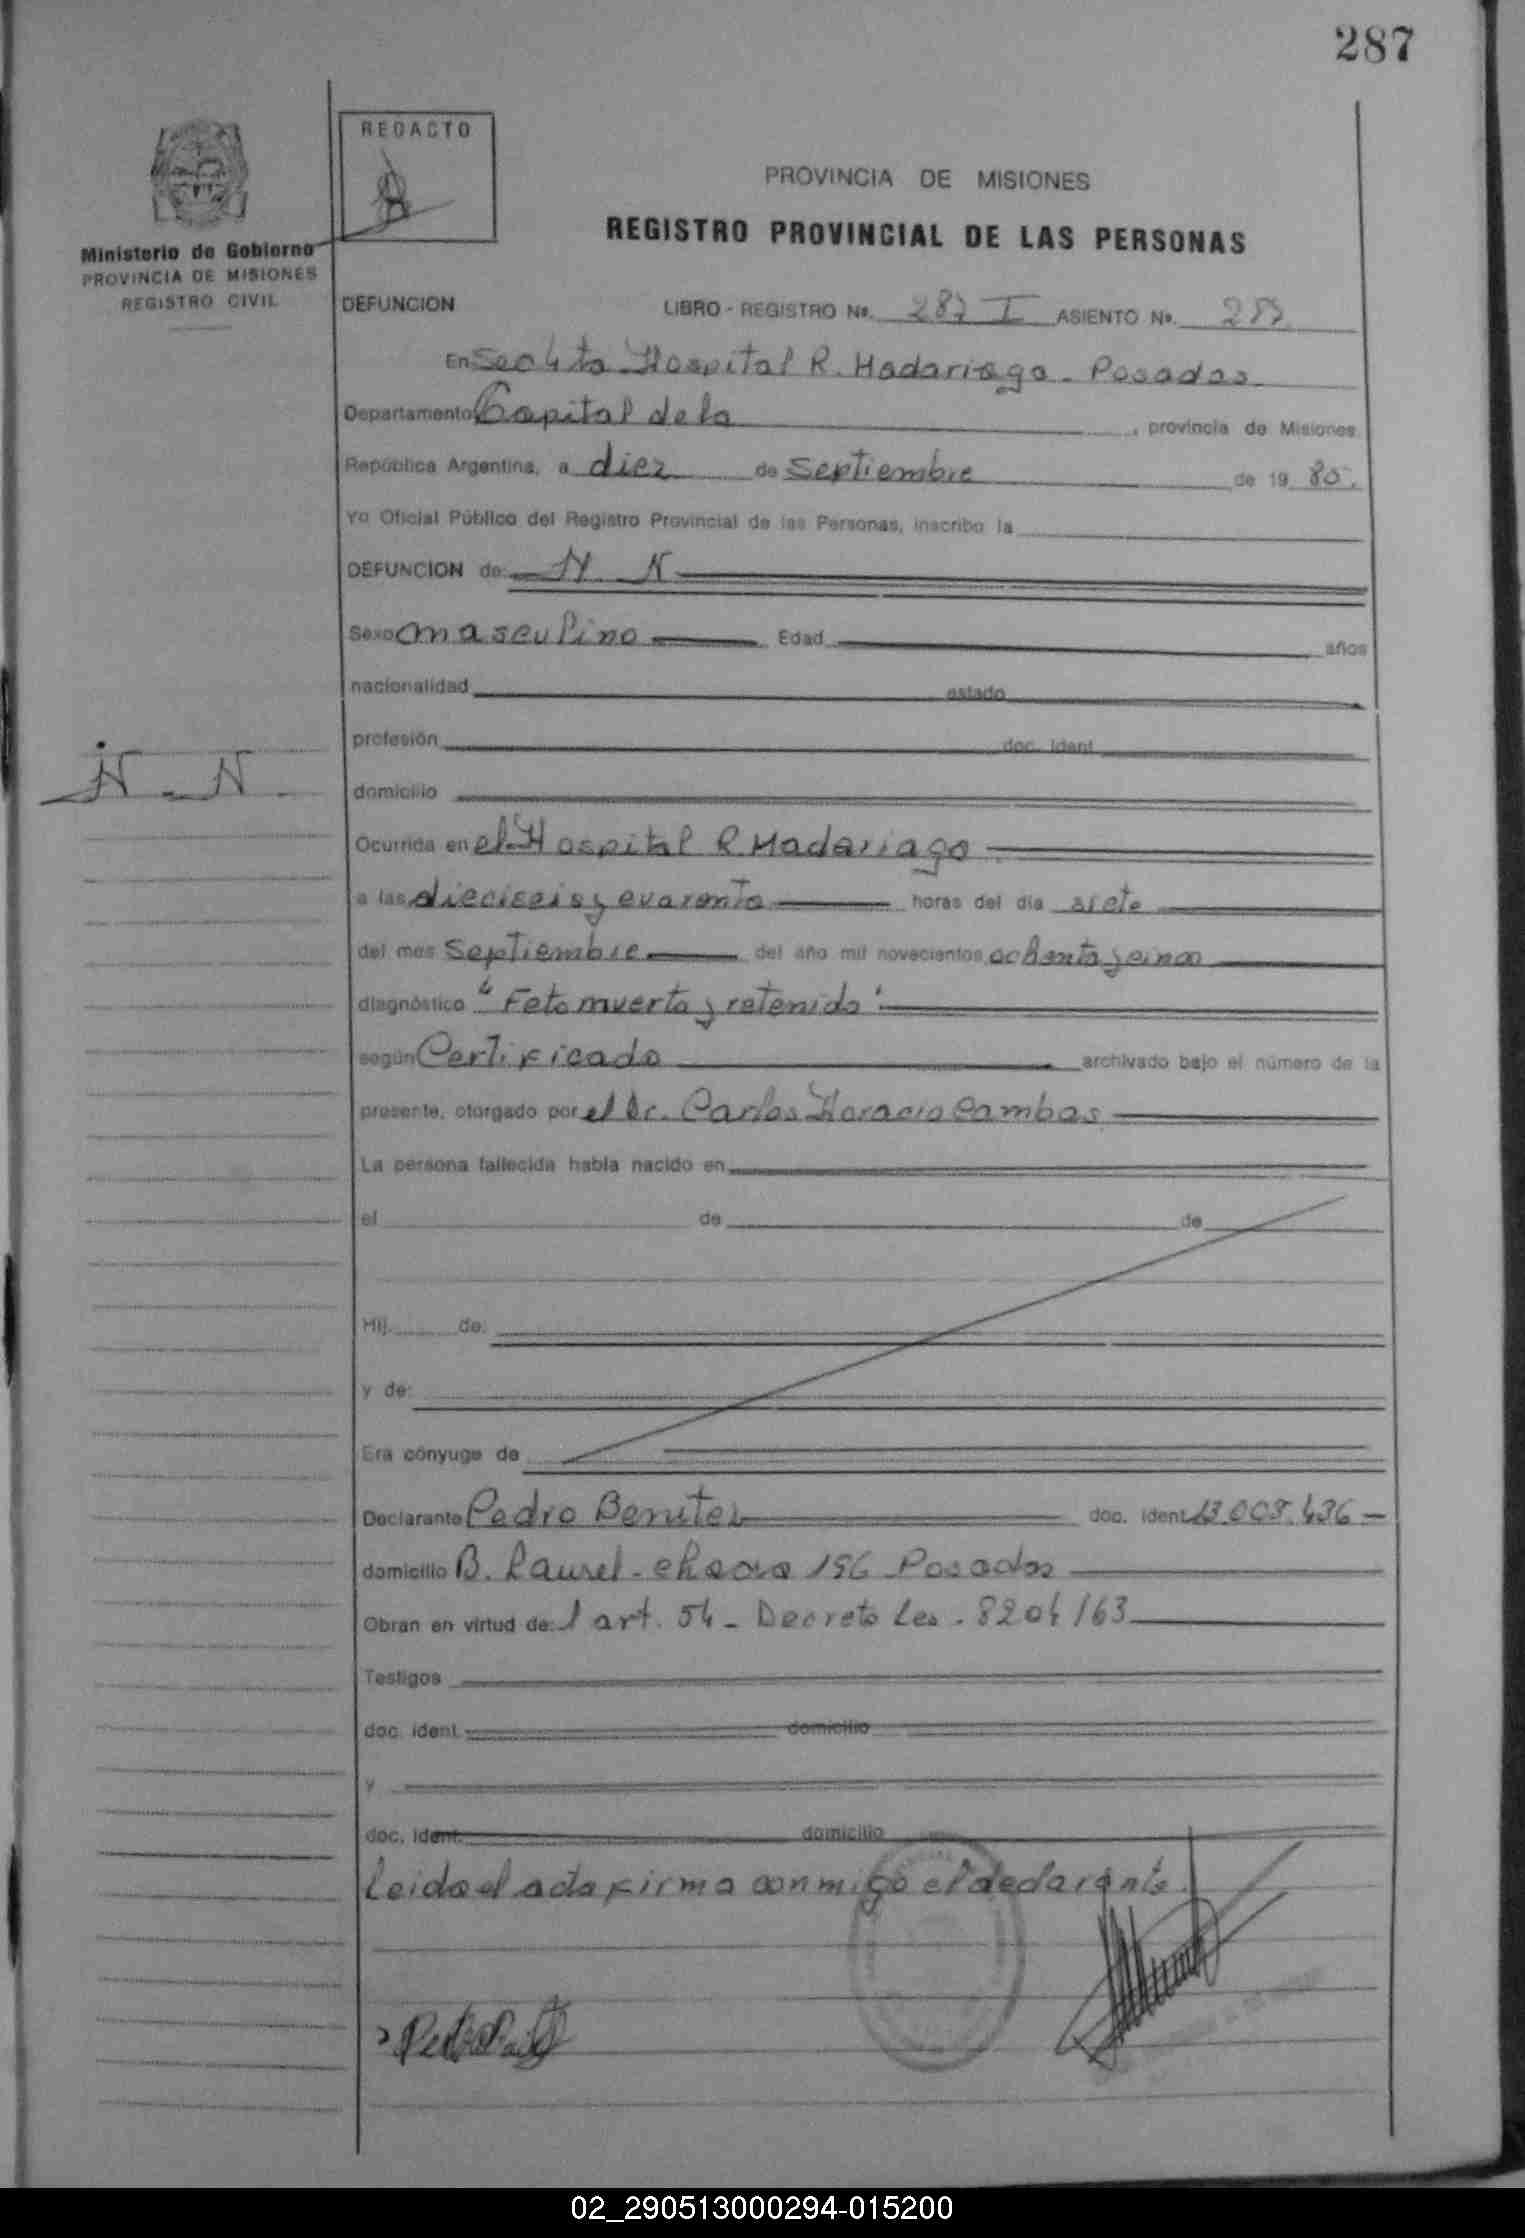 287
REDACTO
PROVINCIA DE MISIONES
REGISTRO PROVINCIAL DE LAS PERSONAS
Ministerio de Gobierno
PROVINCIA DE MISIONES
REGISTRO CIVIL
DEFUNCION LIBRO - REGISTRO Nº. 287 I ASIENTO Nº. 287
En Sec 4ta Hospital R. Madariaga - Posadas
Departamento Capital de la , provincia de Misiones
República Argentina, a diez de Septiembre de 19 85.
Yo Oficial Público del Registro Provincial de las Personas, inscribo la
DEFUNCION de: N. N
Sexo masculino Edad años
nacionalidad estado
profesión doc. ident
N - N -
domicilio
Ocurrida en el Hospital R Madariaga
a las dieciseis y cuarenta horas del día siete
del mes Septiembre del año mil novecientos ochenta y cinco
diagnóstico "Feto muerto y retenido"
según Certificado archivado bajo el número de la
presente, otorgado por el Dr. Carlos Horacio Cambas
La persona fallecida había nacido en
el de de
Hij de:
y de:
Era cónyuge de
Declarante Pedro Benitez doc. ident 13.008.436 -
domicilio B. Laurel - chacra 196 Posadas
Obran en virtud de: l art. 54 - Decreto Ley - 8204/63
Testigos
doc. ident. domicilio
y
doc. ident. domicilio
Leida el acta firma conmigo el declarante.
02_290513000294-015200